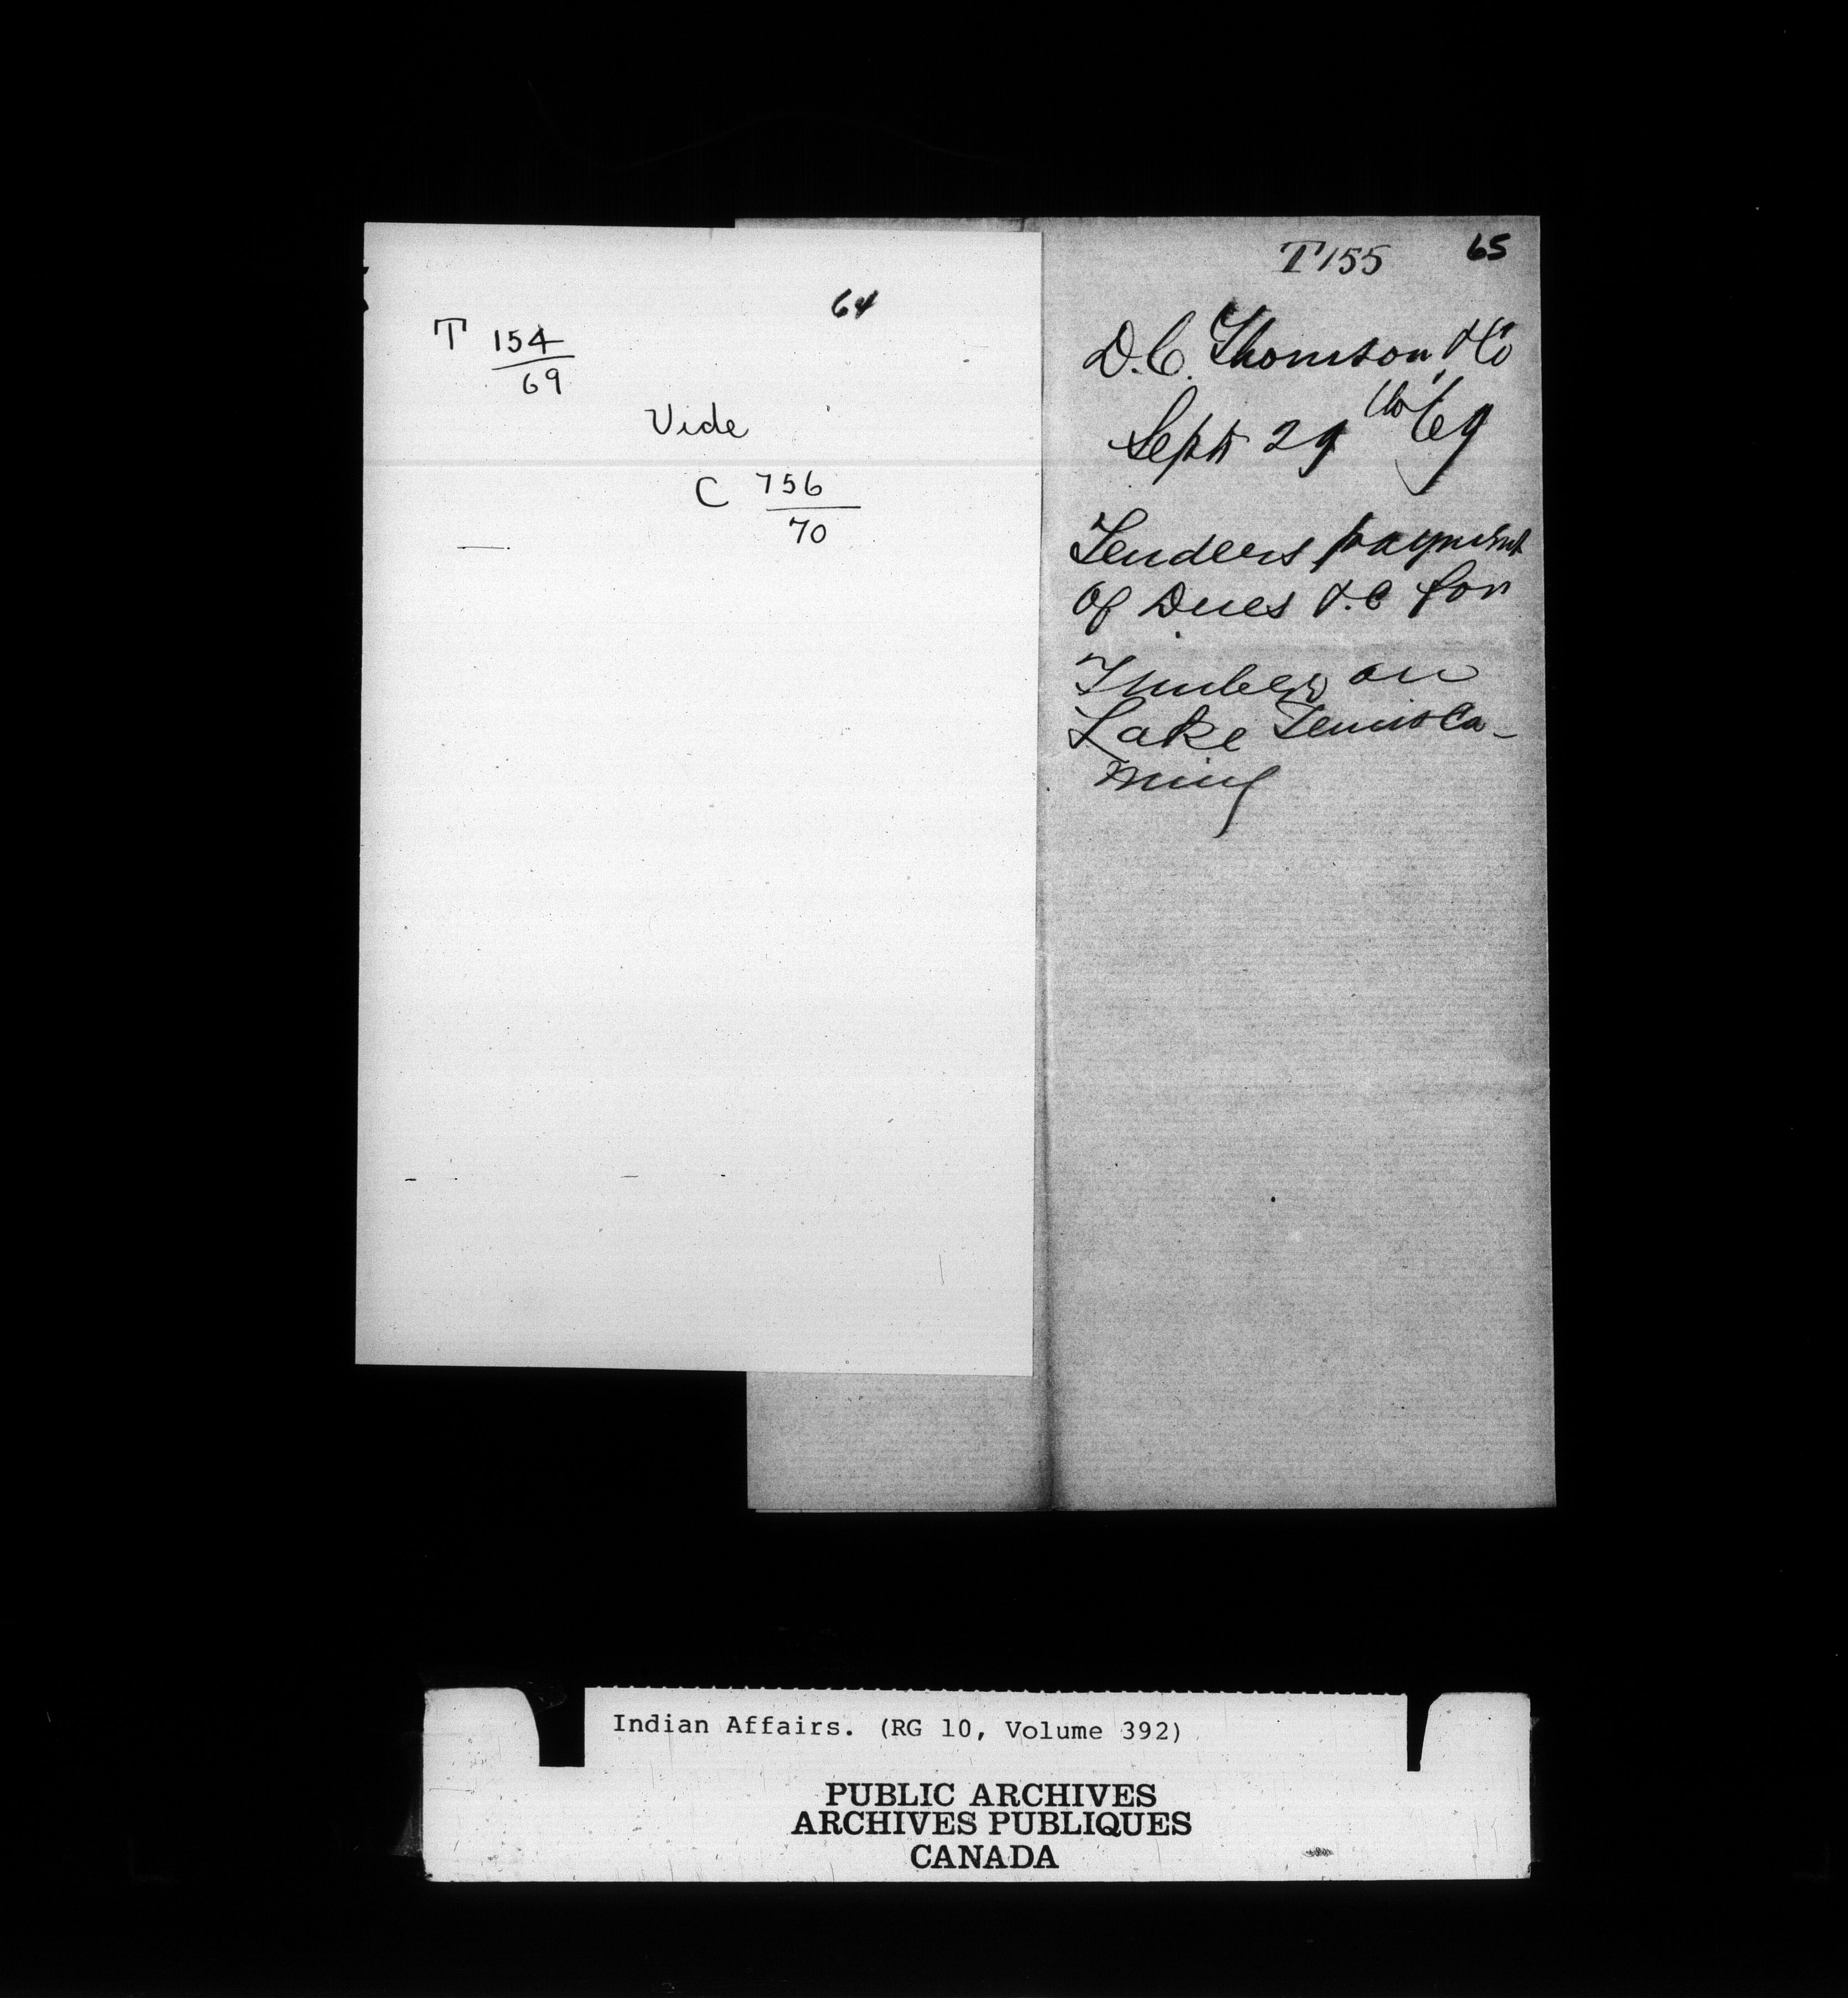 64
T 154/69
Vide
C 756/70
T155 65
D.C. Thomson & Co
Sept 29th /69
Tenders payment
of Dues &.c for
Timber on
Lake Temisca-
ming
Indian Affairs. (RG 10, Volume 392)
PUBLIC ARCHIVES
ARCHIVES PUBLIQUES
CANADA